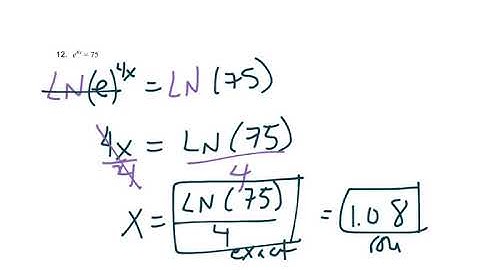 12. e^{4x} = 75
LN(e)^{4x} = LN(75)
4x/4 = LN(75)/4
x = LN(75)/4 = 1.08
exact rou